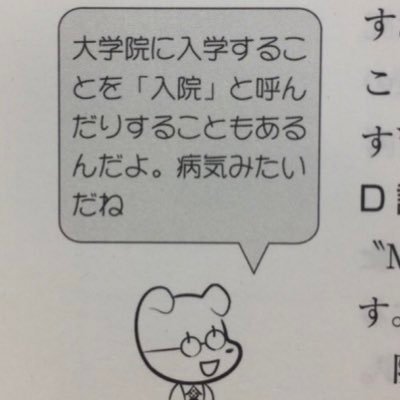 大学院に入学するこ
とを「入院」と呼ん
だりすることもある
んだよ。病気みたい
だね
す
こ
す
D
〝M
す。